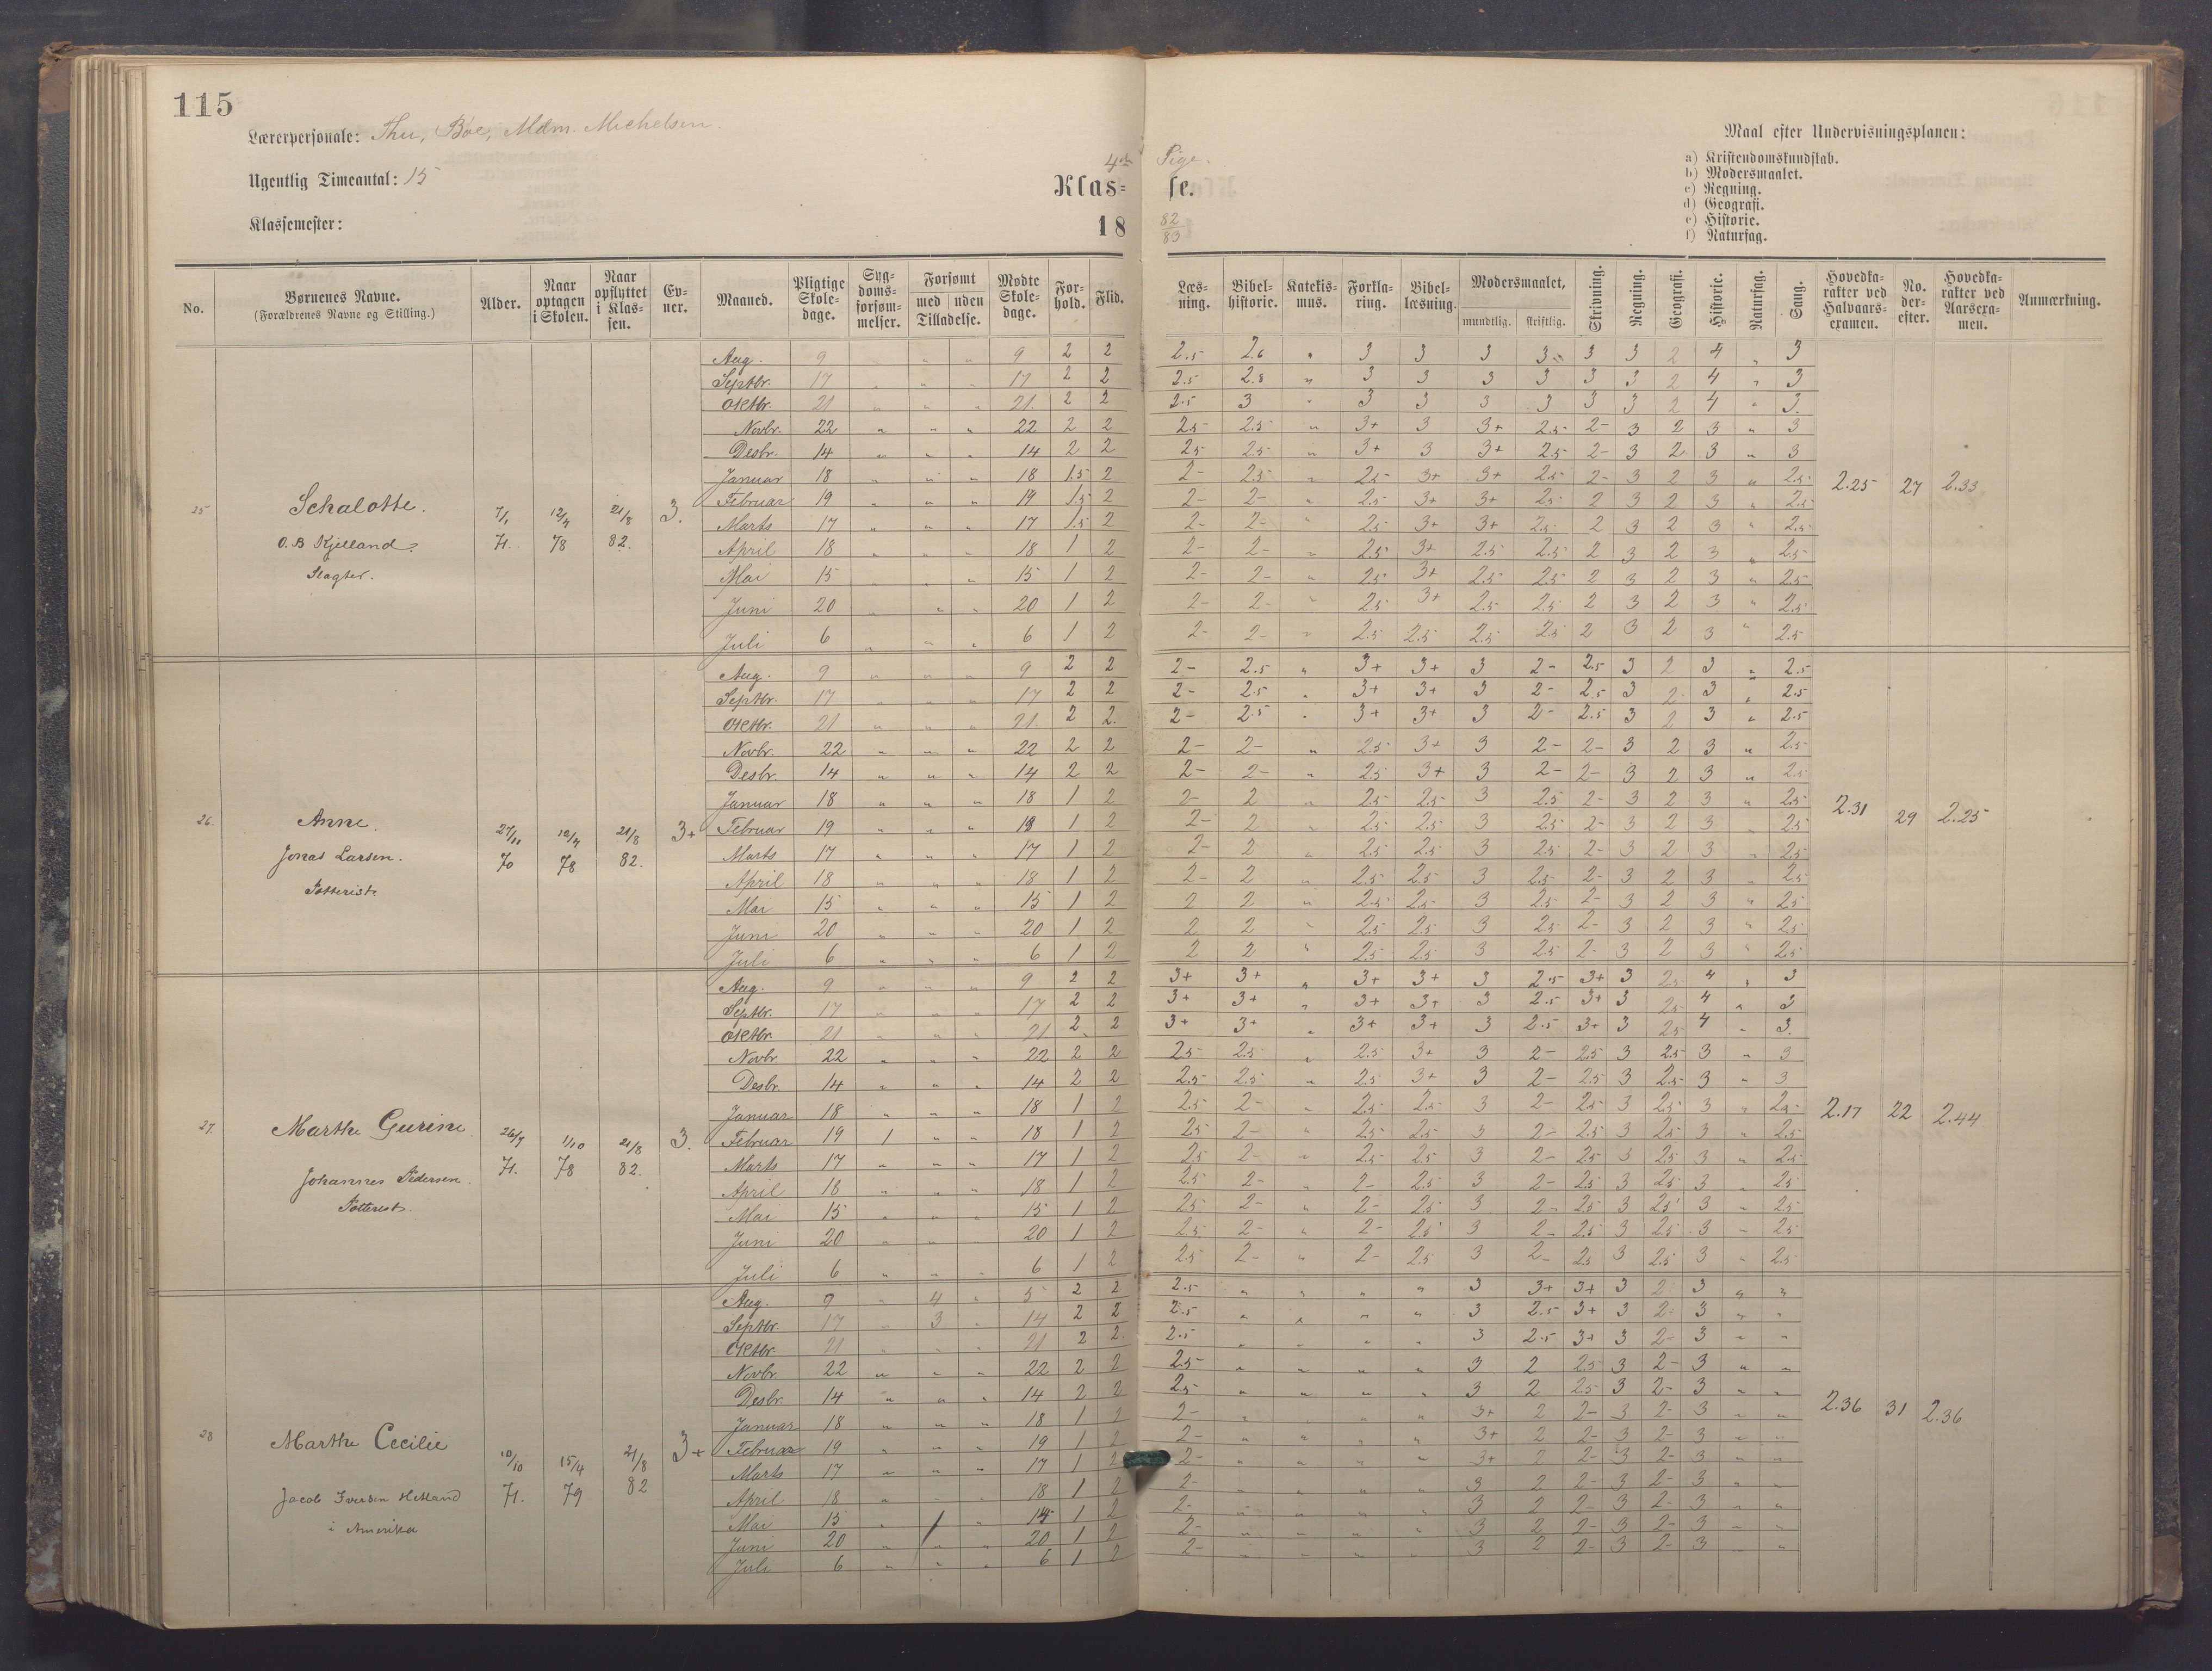 115
Lærerpersonale: Thu, Bøe, Mdm. Michelsen.
Ugentlig Timeantal: 15
Klassemester:
4de Pige.
Klas= se.
18 82/83
Maal efter Undervisningsplanen:
a) Kristendomskundskab.
b) Modersmaalet.
c) Regning.
d) Geografi.
e) Historie.
f) Naturfag.
No. | Børnenes Navne. (Forældrenes Navne og Stilling.) | Alder. | Naar optagen i Skolen. | Naar opflyttet i Klassen. | Evner. | Maaned. | Pligtige Skoledage. | Sygdomsforsømmelser. | Forsømt med / uden Tilladelse. | Mødte Skoledage. | Forhold. | Flid. | Læsning. | Bibelhistorie. | Katekismus. | Forklaring. | Bibellæsning. | Modersmaalet, mundtlig. | skriftlig. | Skrivning. | Regning. | Geografi. | Historie. | Naturfag. | Sang. | Hovedkarakter ved Halvaarsexamen. | No. derefter. | Hovedkarakter ved Aarsexamen. | Anmærkning.
25 Schalotte. O. B Kjelland. Slagter. 7/1 71. 12/4 78 21/8 82. 3. 2.25 27 2.33
Aug. 9 „ „ „ 9 2 2 2.5 2.6 „ 3 3 3 3- 3 3 2 4 „ 3
Septbr. 17 „ „ „ 17 2 2 2.5 2.8 „ 3 3 3 3 3 3 2 4 „ 3
Oktbr. 21 „ „ „ 21. 2 2 2.5 3 „ 3 3 3 3 3 3 2 4 „ 3.
Novbr. 22 „ „ „ 22 2 2 2.5 2.5 „ 3+ 3 3+ 2.5 2- 3 2 3 „ 3
Desbr. 14 „ „ „ 14 2 2 2.5 2.5 „ 3+ 3 3+ 2.5 2- 3 2 3 „ 3
Januar 18 „ „ „ 18 1.5 2 2- 2.5 „ 2.5 3+ 3+ 2.5 2- 3 2 3 „ 2.5
Februar 19 „ „ „ 19 1.5 2 2- 2- „ 2.5 3+ 3+ 2.5 2 3 2 3 „ 2.5
Marts 17 „ „ „ 17 1.5 2 2- 2- „ 2.5 3+ 3+ 2.5 2 3 2 3 „ 2.5
April 18 „ „ „ 18 1 2 2- 2- „ 2.5 3+ 2.5 2.5 2 3 2 3 „ 2.5
Mai 15 „ „ „ 15 1 2 2- 2- „ 2.5 3+ 2.5 2.5 2 3 2 3 „ 2.5
Juni 20 „ „ „ 20 1 2 2- 2- „ 2.5 3+ 2.5 2.5 2 3 2 3 „ 2.5
Juli 6 „ „ „ 6 1 2 2- 2- „ 2.5 2.5 2.5 2.5 2 3 2 3 „ 2.5
26. Anne. Jonas Larsen. Potterist. 27/11 70 12/4 78 21/8 82. 3+ 2.31 29 2.25
Aug. 9 „ „ „ 9 2 2 2- 2.5 „ 3+ 3+ 3 2- 2.5 3 2 3 „ 2.5
Septbr. 17 „ „ „ 17 2 2 2- 2.5 „ 3+ 3+ 3 2- 2.5 3 2- 3 „ 2.5
Oktbr. 21 „ „ „ 21. 2 2. 2- 2.5 „ 3+ 3+ 3 2- 2.5 3 2 3 „ 2.5
Novbr. 22 „ „ „ 22 2 2 2- 2- „ 2.5 3+ 3 2- 2- 3 2 3 „ 2.5
Desbr. 14 „ „ „ 14 2 2 2- 2- „ 2.5 3+ 3 2- 2- 3 2 3 „ 2.5
Januar 18 „ „ „ 18 1 2 2- 2 „ 2.5 2.5 3 2.5 2- 3 2 3 „ 2.5
Februar 19 „ „ „ 19 1 2 2- 2 „ 2.5 2.5 3 2.5 2- 3 2 3 „ 2.5
Marts 17 „ „ „ 17 1 2 2- 2 „ 2.5 2.5 3 2.5 2- 3 2 3 „ 2.5
April 18 „ „ „ 18 1 2 2- 2 „ 2.5 2.5 3 2.5 2- 3 2 3 „ 2.5
Mai 15 „ „ „ 15 1 2 2 2 „ 2.5 2.5 3 2.5 2- 3 2 3 „ 2.5
Juni 20 „ „ „ 20 1 2 2 2 „ 2.5 2.5 3 2.5 2- 3 2 3 „ 2.5
Juli 6 „ „ „ 6 1 2 2 2 „ 2.5 2.5 3 2.5 2- 3 2 3 „ 2.5
27. Marthe Gurine Johannes Pedersen. Potterist. 26/7 71. 1/10 78 21/8 82. 3. 2.17 22 2.44
Aug. 9 „ „ „ 9 2 2 3+ 3+ „ 3+ 3+ 3 2.5 3+ 3 2.5 4 „ 3
Septbr. 17 „ „ „ 17 2 2 3+ 3+ „ 3+ 3+ 3 2.5 3+ 3 2.5 4 „ 3
Oktbr. 21 „ „ „ 21 2 2 3+ 3+ „ 3+ 3+ 3 2.5 3+ 3 2.5 4 „ 3.
Novbr 22 „ „ „ 22 2 2 2.5 2.5 „ 2.5 3+ 3 2- 2.5 3 2.5 3 „ 3
Desbr. 14 „ „ „ 14 2 2 2.5 2.5 „ 2.5 3+ 3 2- 2.5 3 2.5 3 „ 3
Januar 18 „ „ „ 18 1 2 2.5 2- „ 2.5 2.5 3 2- 2.5 3 2.5 3 „ 2.5
Februar 19 1 „ „ 18 1 2 2.5 2- „ 2.5 2.5 3 2- 2.5 3 2.5 3 „ 2.5
Marts 17 „ „ „ 17 1 2 2.5 2- „ 2.5 2.5 3 2- 2.5 3 2.5 3 „ 2.5
April 18 „ „ „ 18 1 2 2.5 2- „ 2- 2.5 3 2- 2.5 3 2.5 3 „ 2.5
Mai 15 „ „ „ 15 1 2 2.5 2- „ 2- 2.5 3 2- 2.5 3 2.5 3 „ 2.5
Juni 20 „ „ „ 20 1 2 2.5 2- „ 2- 2.5 3 2- 2.5 3 2.5 3 „ 2.5
Juli 6 „ „ „ 6 1 2 2.5 2- „ 2- 2.5 3 2- 2.5 3 2.5 3 „ 2.5
28 Marthe Cecilie Jacob Iversen Hetland i Amerika 10/10 71. 15/4 79 21/8 82 3+ 2.36 31 2.36
Aug. 9 „ 4 „ 5 2 2 2.5 „ „ „ „ 3 3+ 3+ 3 2 3 „ „
Septbr. 17 „ 3 „ 14 2 2 2.5 „ „ „ „ 3 2.5 3+ 3 2- 3 „ „
Oktbr. 21 „ „ „ 21 2 2. 2.5 „ „ „ „ 3 2.5 3+ 3 2- 3 „ „
Novbr. 22 „ „ „ 22 2 2 2.5 „ „ „ „ 3 2 2.5 3 2- 3 „ „
Desbr. 14 „ „ „ 14 2 2 2.5 „ „ „ „ 3 2 2.5 3 2- 3 „ „
Januar 18 „ „ „ 18 1 2 2- „ „ „ „ 3+ 2 2- 3 2- 3 „ „
Februar 19 „ „ „ 19 1 2 2- „ „ „ „ 3+ 2 2- 3 2- 3 „ „
Marts 17 „ „ „ 17 1 2 2- „ „ „ „ 3+ 2 2- 3 2- 3 „ „
April 18 „ „ „ 18 1 2 2- „ „ „ „ 3 2 2- 3 2- 3 „ „
Mai 15 „ 1 „ 14 1 2 2- „ „ „ „ 3 2 2- 3 2- 3 „ „
Juni 20 „ „ „ 20 1 2 2- „ „ „ „ 3 2 2- 3 2- 3 „ „
Juli 6 „ „ „ 6 1 2 2- „ „ „ „ 3 2 2- 3 2- 3 „ „